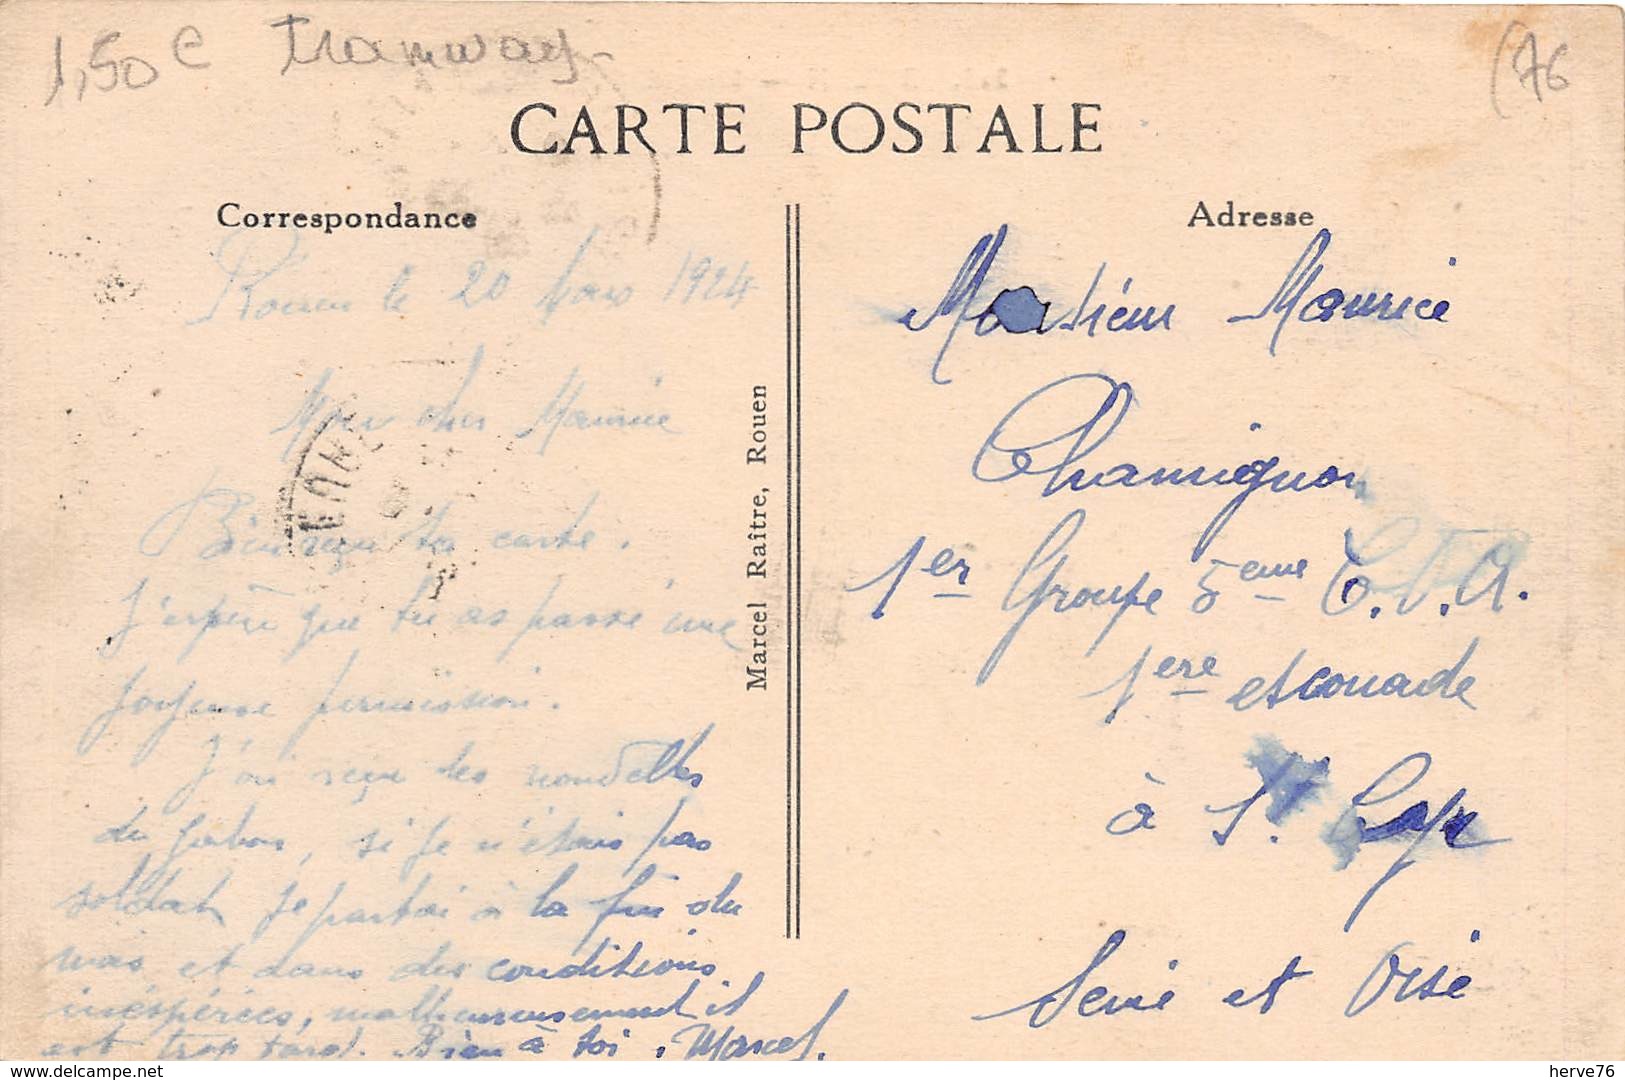 1,50 e Tramway
(76
CARTE POSTALE
Correspondance
Rouen le 20 Mars 1924
Mon cher Maurice
Bien reçu ta carte.
J'espère que tu as passé une
joyeuse permission.
J'ai reçu des nouvelles
du gabon, si je n'étais pas
soldat je partai à la fin du
mois et dans des conditions
inéspérées, malheureusement il
est trop tard. Bien à toi. Marcel.
Marcel Raître, Rouen
Adresse
Monsieur Maurice
Chamignon
1er Groupe 5eme C.V.A.
1ere escouade
à St Cyr
Seine et Oise
delcampe.net
herve76